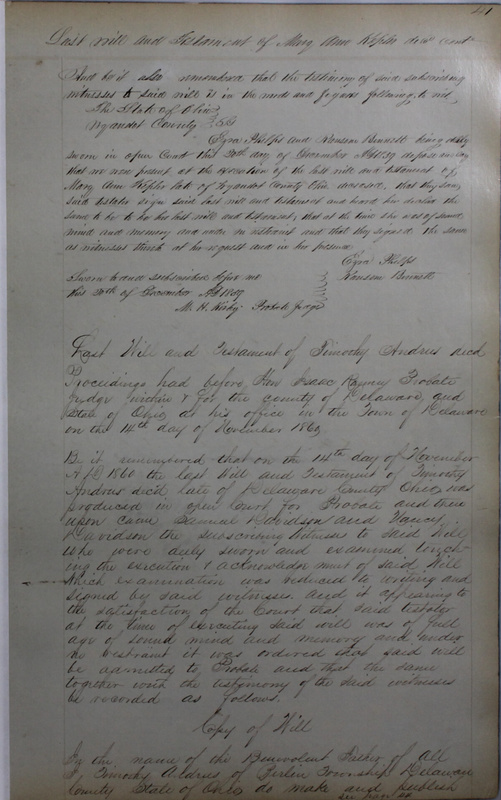 41
Last will and Testament of Mary Ann Kepler decd cont
And be it also remembered that the testimony of said subscribing
witnesses to said will is in the words and figures following, to wit,
The State of Ohio
Wyandot County } SS
Ezra Phelps and Ransom Bennett being duly
sworn in open Court this 30th day of December AD 1859 depose and say
that we were present at the execution of the last will and testament of
Mary Ann Kepler late of Wyandot County Ohio deceased, that they saw
said testator sign said last will and testament and heard her declare the
same to be her last will and testament, that at the time she was of sound
mind and memory and under no restraint and that they signed the same
as witnesses thereto at her request and in her presence.
Ezra Phelps
Sworn to and subscribed before me Ransom Bennett
this 30th of December AD 1859
M. H. Kirby Probate Judge
Last Will and Testament of Timothy Andrus decd
Proceedings had before Hon Isaac Ranney Probate
Judge within & for the county of Delaware and
State of Ohio at his office in the Town of Delaware
on the 14th day of November 1860
Be it remembered that on the 14th day of November
AD 1860 the last Will and Testament of Timothy
Andrus decd late of Delaware County Ohio was
produced in open Court for Probate and there
upon came Samuel Davidson and Nancy
Davidson the subscribing witnesses to said will
who were duly sworn and examined touch-
ing the execution & acknowledgement of said Will
which examination was reduced to writing and
signed by said witnesses. and it appearing to
the satisfaction of the Court that said testator
at the time of executing said will was of full
age of sound mind and memory and under
no restraint it was ordered that said will
be admitted to Probate and that the same
together with the testimony of the said witnesses
be recorded as follows.
Copy of Will
In the name of the Benevolent Father of All
I, Timothy Andrus of Berlin Township Delaware
County State of Ohio do make and publish